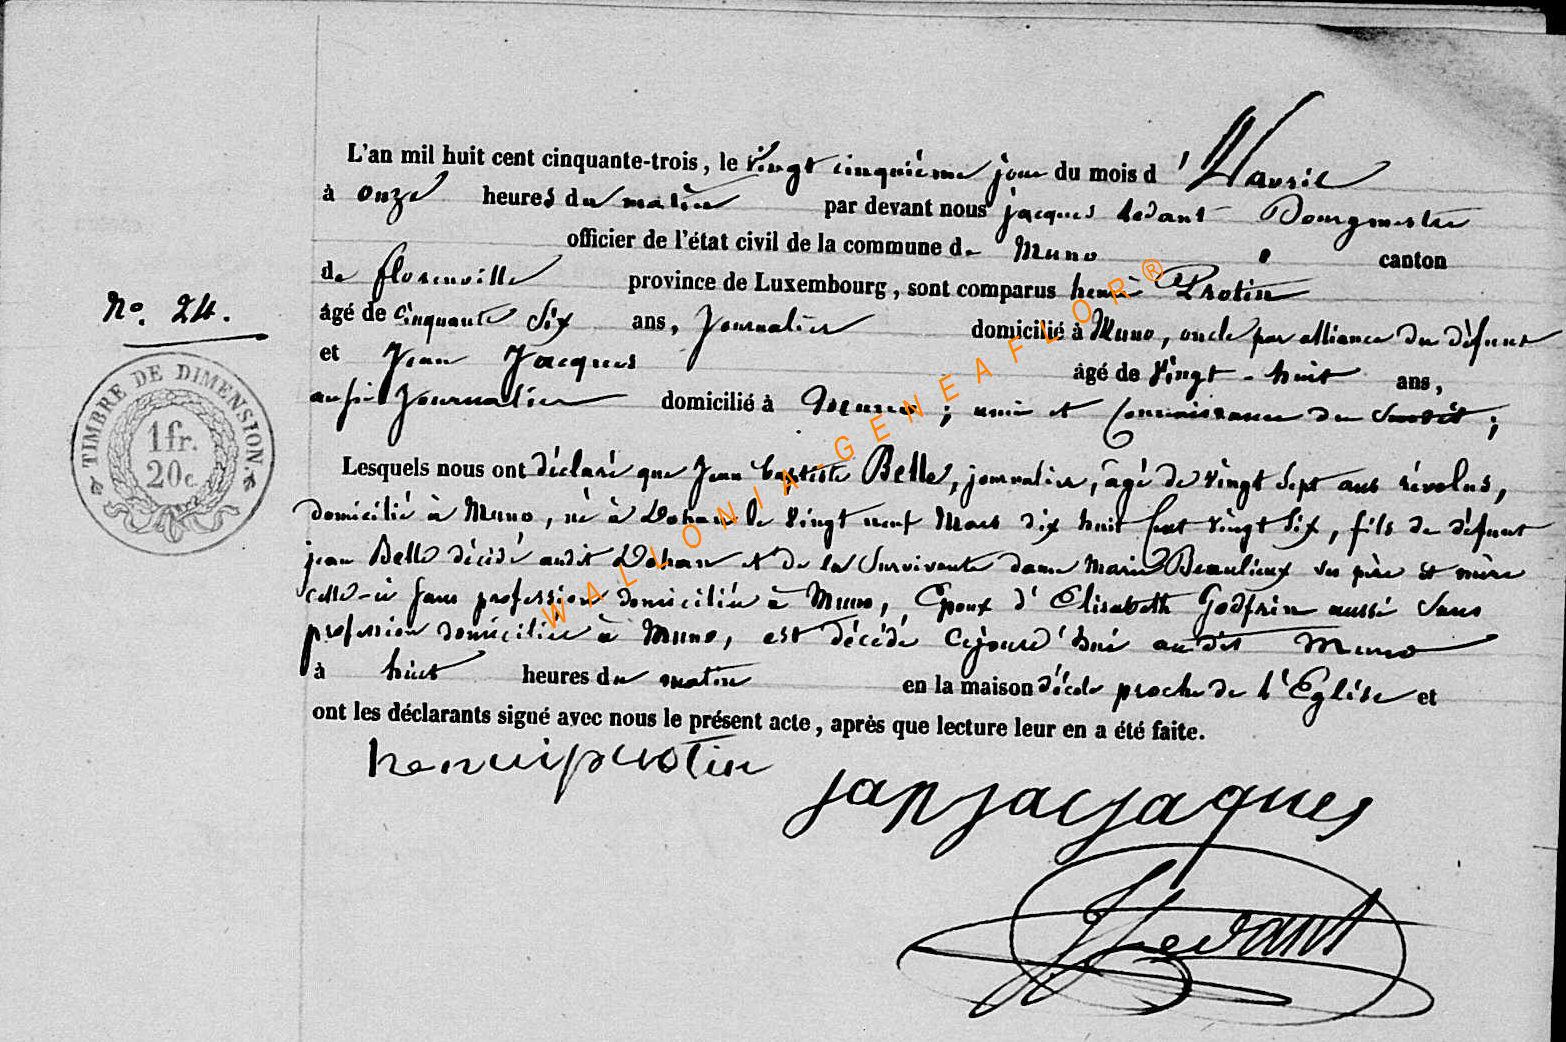 L'an mil huit cent cinquante-trois, le vingt cinquième jour du mois d' avril
à onze heures du matin par devant nous jacques Ledant Bourgmestre
officier de l'état civil de la commune de Muno canton
de florenville province de Luxembourg, sont comparus henri Protin
No. 24.
âgé de cinquante Six ans, Journalier domicilié à Muno, oncle par alliance du défunt
et Jean Jacques âgé de Vingt-huit ans,
aussi Journalier domicilié à Muno; ami et Connaissance du Susdit;
TIMBRE DE DIMENSION.
1 fr.
20 c.
Lesquels nous ont déclaré que Jean baptiste Belle, journalier, âgé de vingt Sept ans révolus,
domicilié à Muno, né à Dohan le Vingt neuf Mars dix huit Cent vingt Six, fils de défunt
jean Belle décédé audit Dohan et de la Survivante dame Marie Beaulieux ses père et mère
celle-ci Sans profession domiciliée à Muno, Epoux d'Elisabeth Godfrin aussi Sans
profession domiciliée à Muno, est décédé cejourd'hui audit Muno
à huit heures du matin en la maison d'école proche de l'Eglise et
ont les déclarants signé avec nous le présent acte, après que lecture leur en a été faite.
henri protin
janjacjaques
JLedant
WALLONIA-GENEAFLOR®